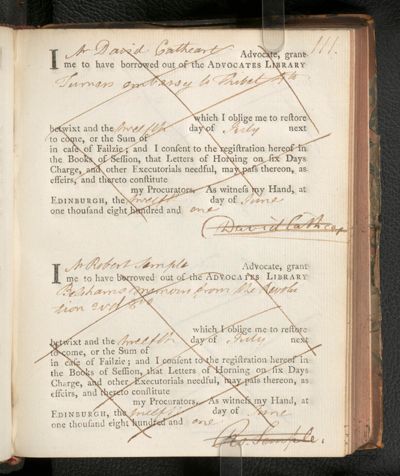 111.
I Mr David Cathcart Advocate, grant
me to have borrowed out of the ADVOCATES LIBRARY
Turners embassy to Thibet 4to
which I oblige me to restore
betwixt and the twelfth day of July next
to come, or the Sum of
in case of Failzie; and I consent to the registration hereof in
the Books of Session, that Letters of Horning on six Days
Charge, and other Executorials needful, may pass thereon, as
effeirs, and thereto constitute
my Procurators. As witness my Hand, at
EDINBURGH, the twelfth day of June
one thousand eight hundred and one
David Cathcart
I Mr Robert Sample Advocate, grant
me to have borrowed out of the ADVOCATES LIBRARY
Belshams memoirs from the Revolu
tion 2 vol 8vo
which I oblige me to restore
betwixt and the twelfth day of July next
to come, or the Sum of
in case of Failzie; and I consent to the registration hereof in
the Books of Session, that Letters of Horning on six Days
Charge, and other Executorials needful, may pass thereon, as
effeirs, and thereto constitute
my Procurators. As witness my Hand, at
EDINBURGH, the twelfth day of June
one thousand eight hundred and one
Ro. Sample.